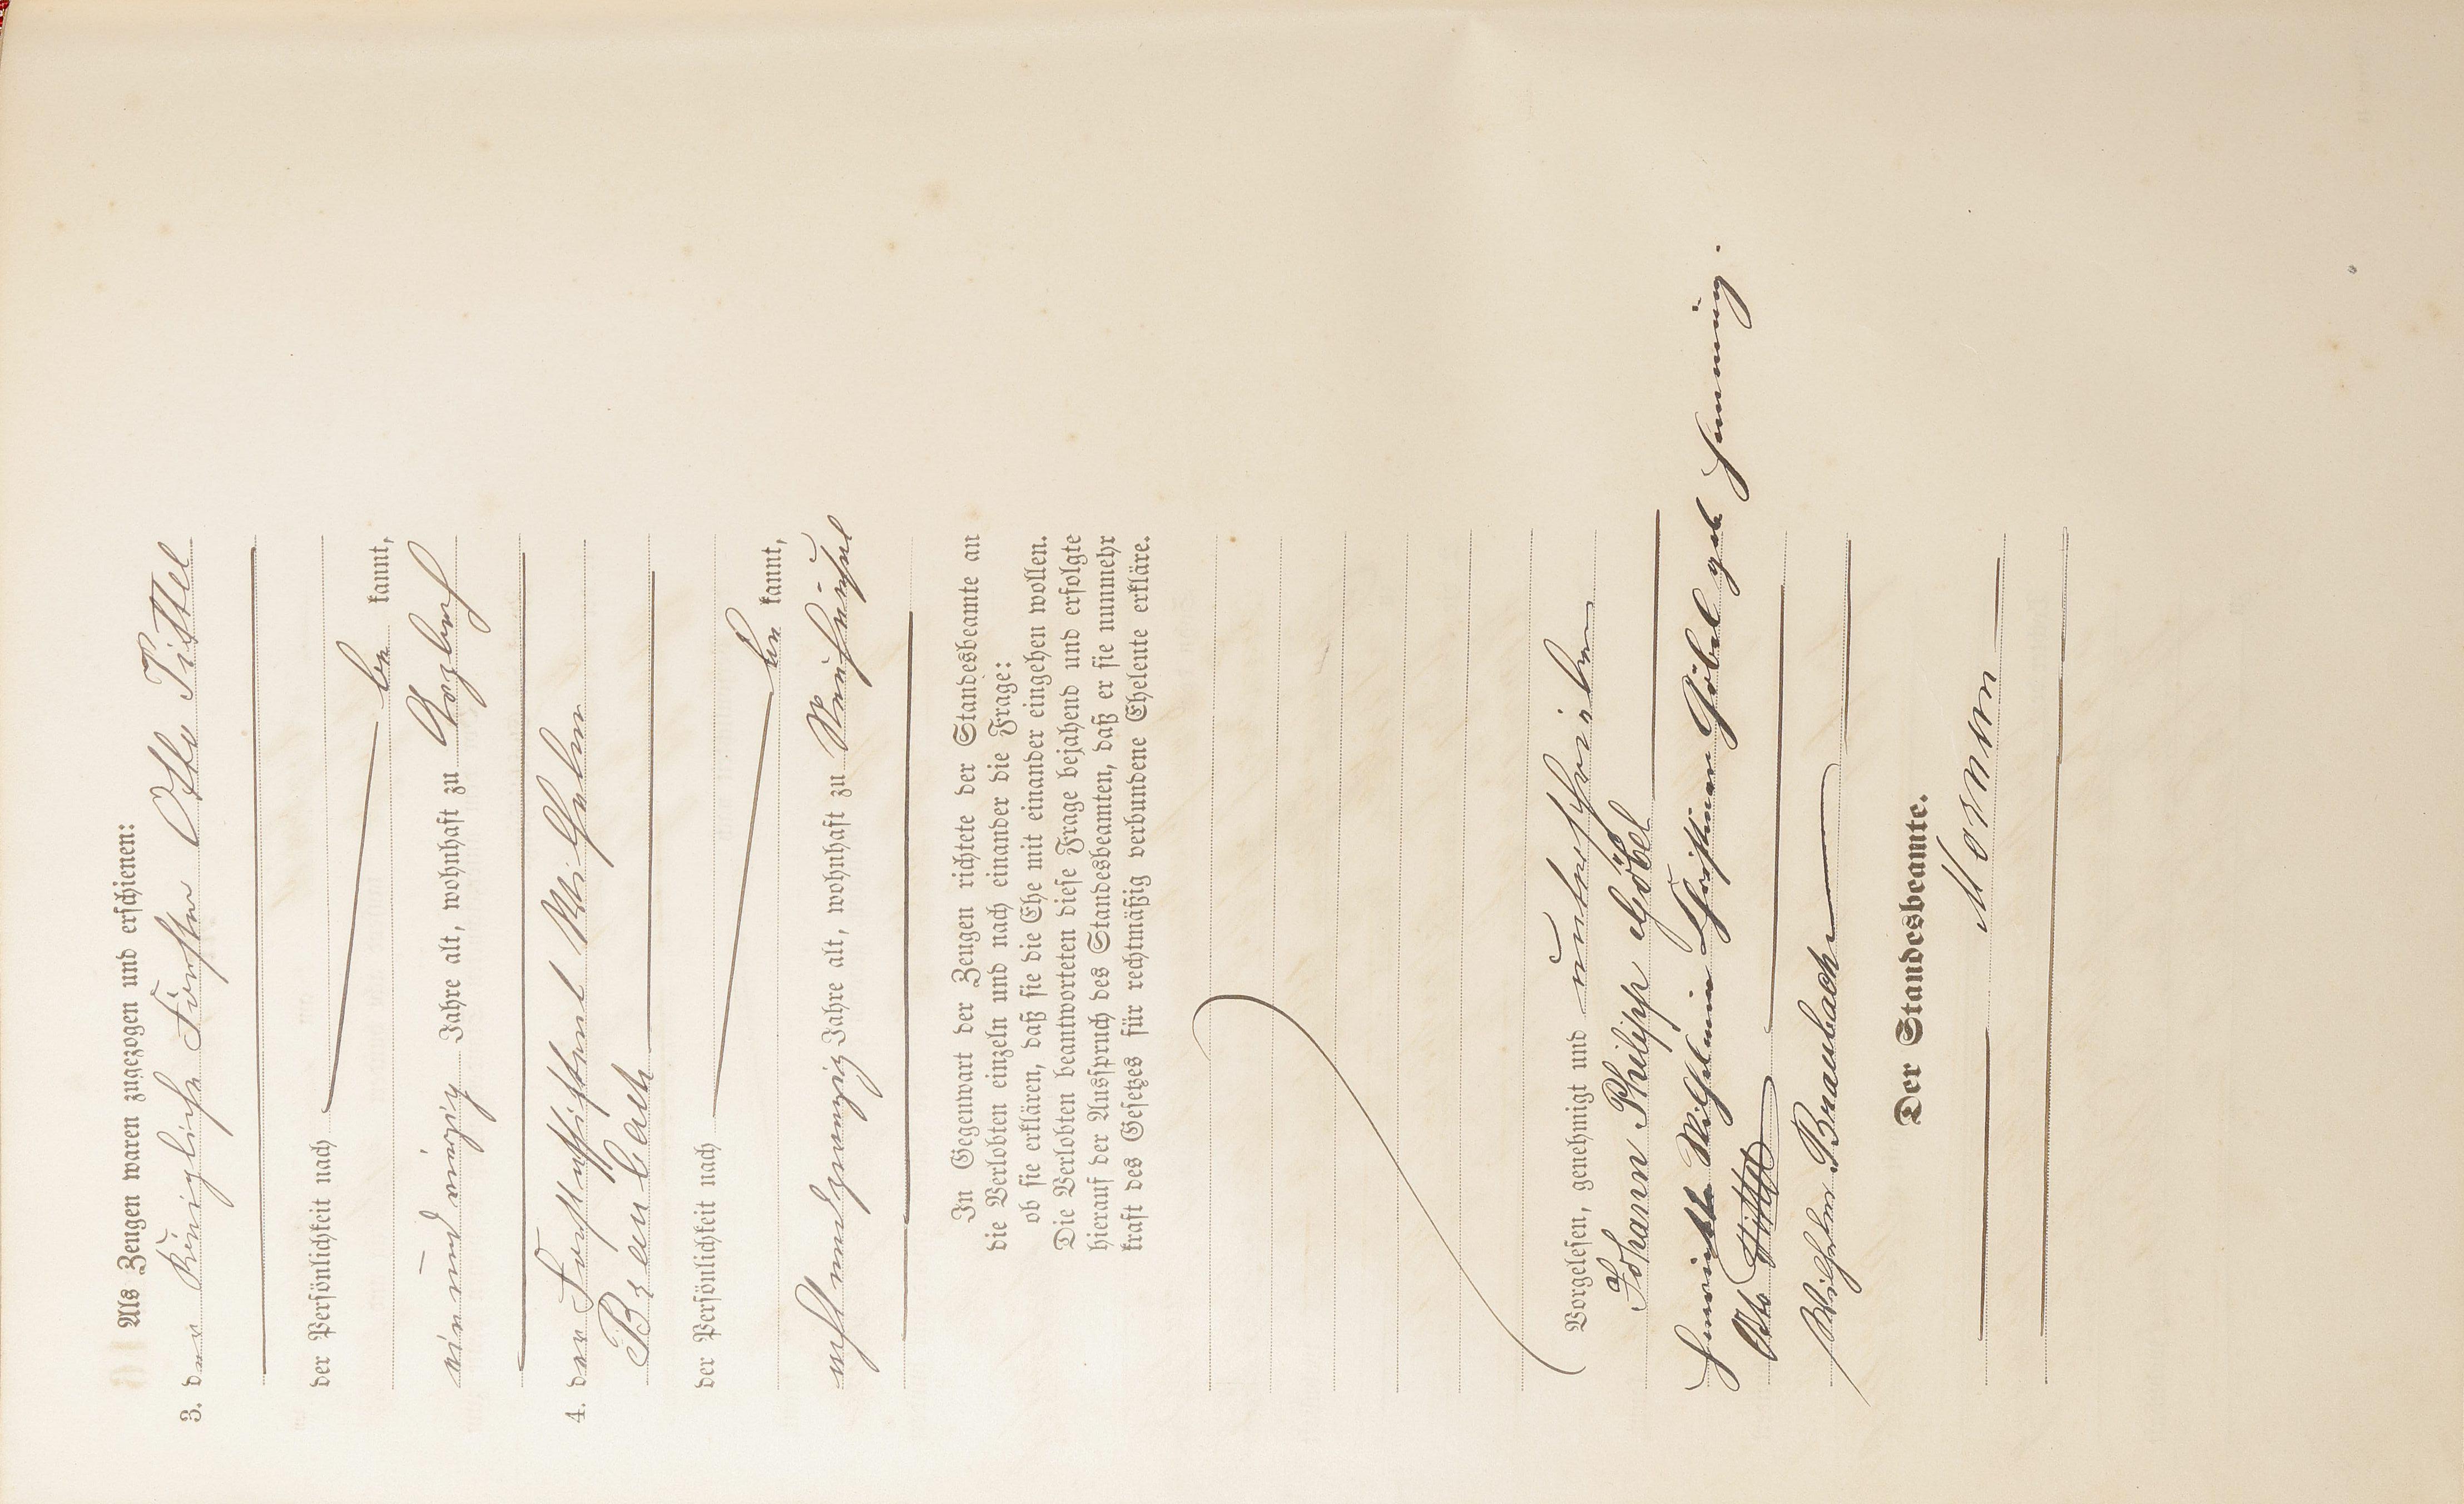 Als Zeugen waren zugezogen und erschienen:
3. der Königliche Förster Otto Tittel
der Persönlichkeit nach
be kannt,
ein und vierzig Jahre alt, wohnhaft zu
4. der Forstassistent Wilhelm
Braubach
der Persönlichkeit nach
be kannt,
achtundzwanzig Jahre alt, wohnhaft zu
In Gegenwart der Zeugen richtete der Standesbeamte an
die Verlobten einzeln und nach einander die Frage:
ob sie erklären, daß sie die Ehe mit einander eingehen wollen.
Die Verlobten beantworteten diese Frage bejahend und erfolgte
hierauf der Ausspruch des Standesbeamten, daß er sie nunmehr
kraft des Gesetzes für rechtmäßig verbundene Eheleute erkläre.
Vorgelesen, genehmigt und unterschrieben
Johann Philipp Göbel
Henriette Wilhelmine Christiane Göbel geb Henning.
Otto Tittel
Wilhelm Braubach
Der Standesbeamte.